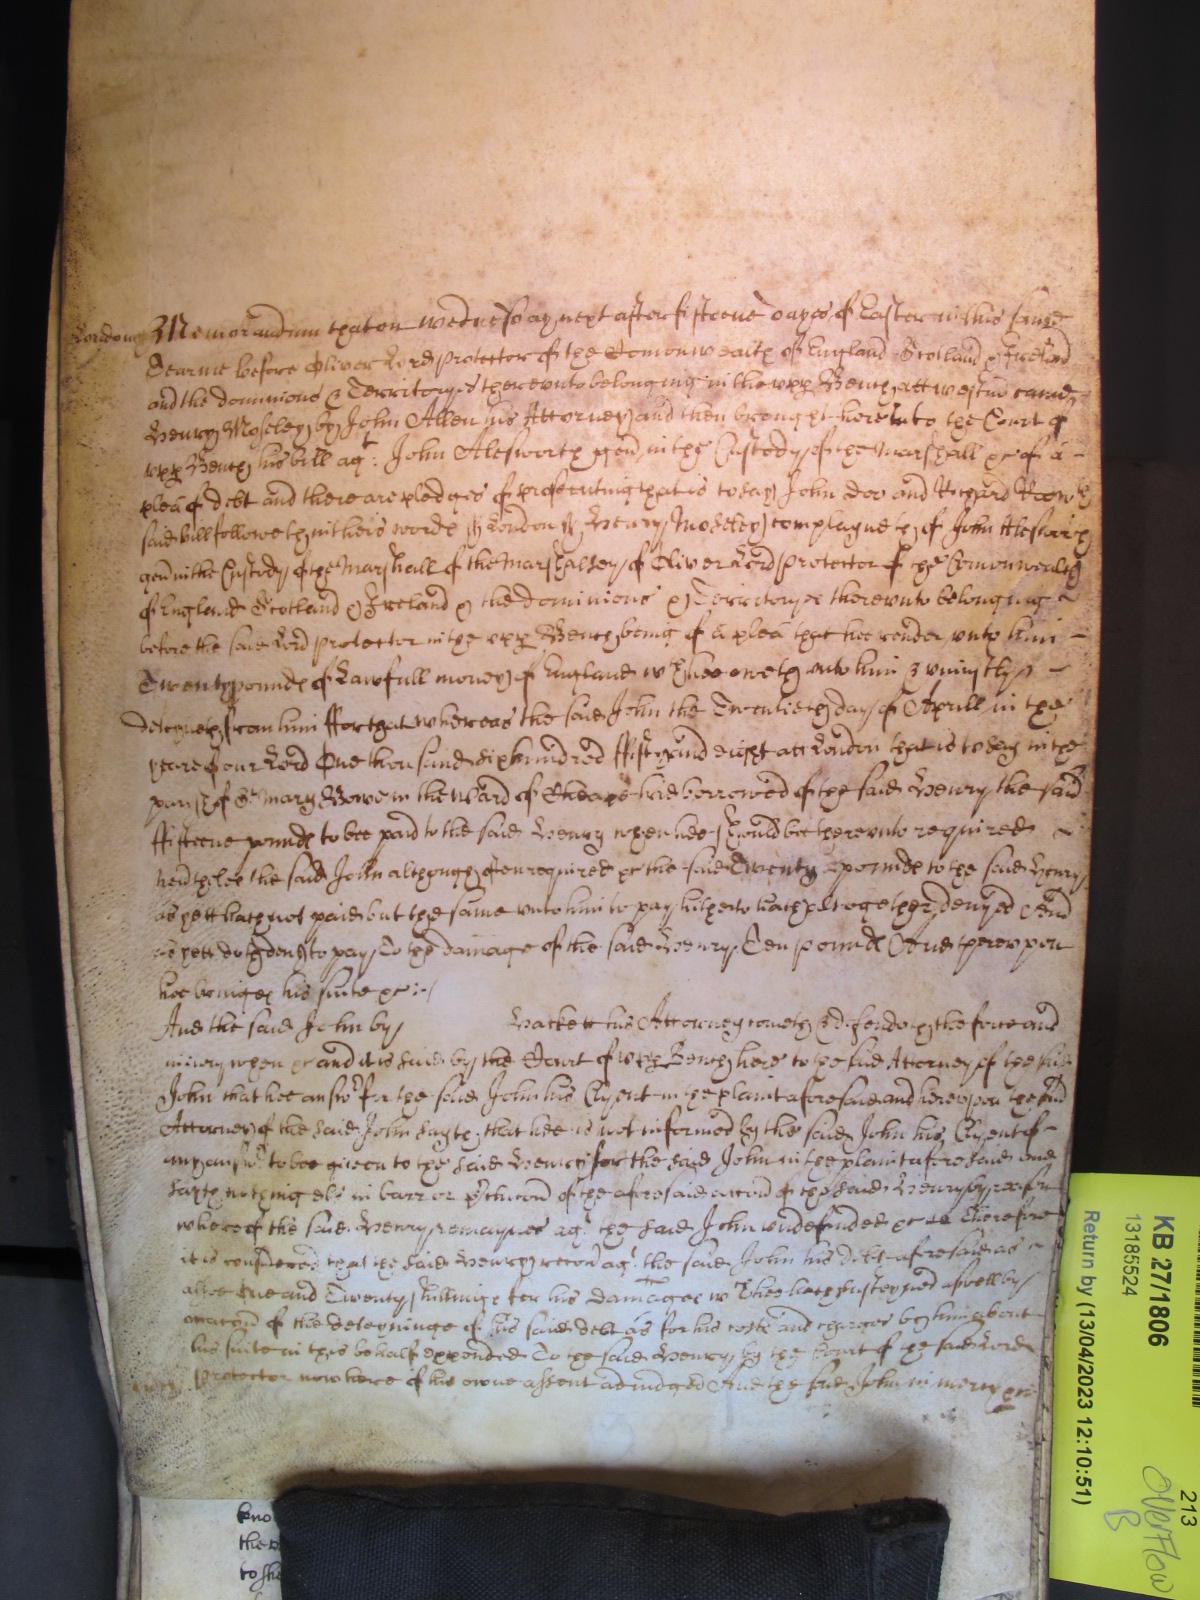 London Memorandum that on Wednesday next after fifteene dayes of Easter in this same
Tearme before Oliver Lord Protector of the Comonwealth of England Scotland & Ireland
and the dominions & Territoryes thereunto belonging in the upp Bench att Westm came
Henry Moseley by John Allen his Attorney and then brought here into the Court of
upp Bench his bill agt: John Alesworth gen in the Custody of the Marshall &c of a
plea of debt and there are pledges of prosecuting that is to say John Doo and Richard Roo wch
said bill followeth in theis words ss London ss Henry Moseley complayneth of John Alesworth
gen in the Custody of the Marshall of the Marshalsey of Oliver Lord Protector of the Comonwealth
of England Scotland & Ireland & the dominions & Territoryes thereunto belonging
before the said Lord Protector in the upp Bench being of a plea that hee render unto him
Twenty pounds of Lawfull money of England wch hee oweth unto him & uniustly
deteyneth from him ffor that whereas the said John the Twentieth day of Aprill in the
yeare of our Lord One thousand six hundred ffifty and eight att London that is to say in the
parish of St Mary Bowe in the Ward of Cheape had borrowed of the said Henry the said
ffifteene pounds to bee paid to the said Henry when hee should bee thereunto required
neithelee the said John although often required &c the said Twenty pounds to the said Henry
as yett hath not paid but the same unto him to pay hitherto hath altogether denyed And
as yett doth deny to pay To the damage of the said Henry Ten pounds And thereupon
hee bringes his suite &c
And the said John by Hackett his Attorney cometh & defendeth the force and
iniury when &c and it is said by the Court of upp Bench here to the said Attorney of the said
John that hee answr for the said John his Clyent in the plaint aforesaid and hereupon the said
Attorney of the said John sayth that hee is not informed by the said John his Clyent of
any answr to bee given to the said Henry for the said John in the plaint aforesaid and
sayth nothing els in barr or of the aforesaid accon of the said Henry by reason
whereof the said Henry remaynes agt the said John undefended &c Therefore
it is considered that the said Henry recover agt the said John his debt aforesaid as
alsoe One and Twenty shillings for his damages wch hee hath susteyned aswell by
occacon of the deteyninge of his said debt as for his costs and charges by him about
his suite in this behalf expended To the said Henry by the Court of the said Lord
Protector now here of his owne assent adiudged And the said John in mercy &c
kno
the
to the
KB 27/1806
13185524
Return by (13/04/2023 12:10:51)
213
Overflow
B